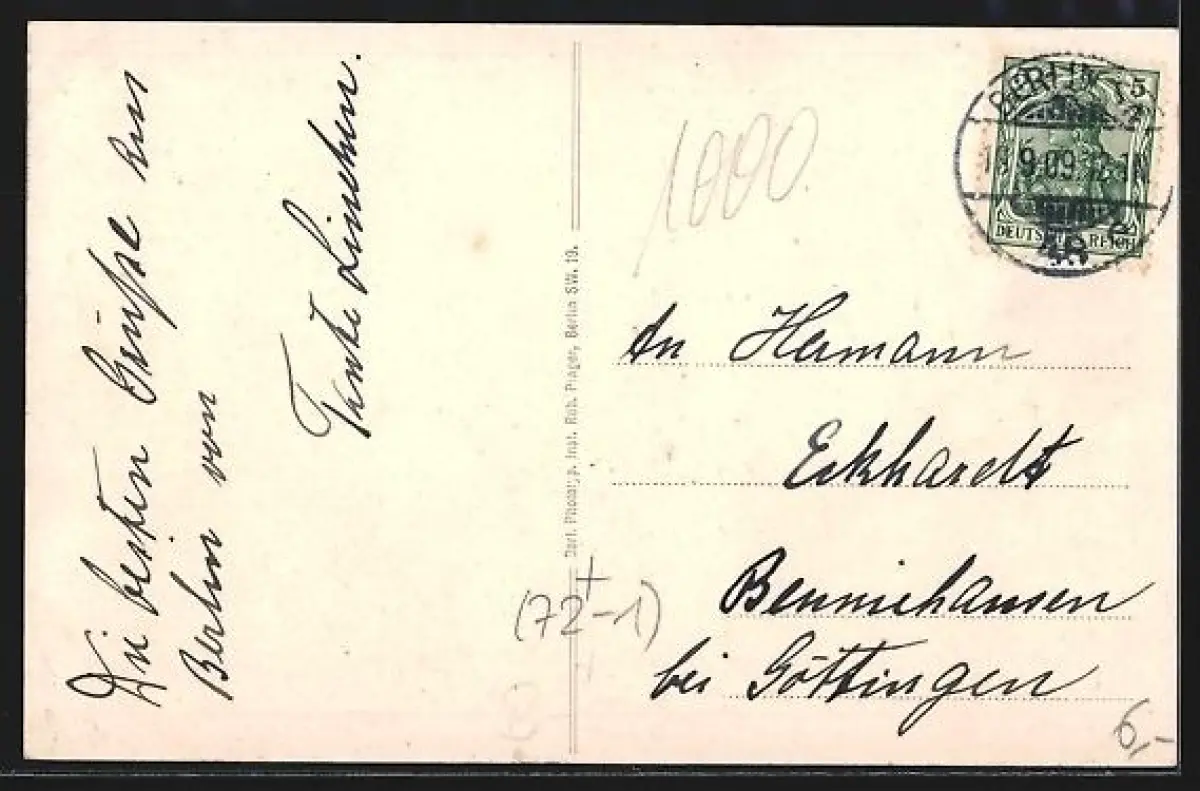 Die besten Grüße aus
Berlin von
Tante Linchen.
Berl. Phototyp. Inst. Rob. Prager, Berlin SW. 19.
1000
BERLIN
9.09.12-1N
5
DEUTSCHES REICH
An Hermann
Eckhardt
Benniehausen
bei Göttingen
(72-1)
6,-